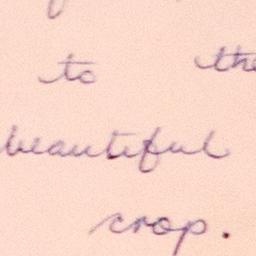 to the
beautiful
crop.